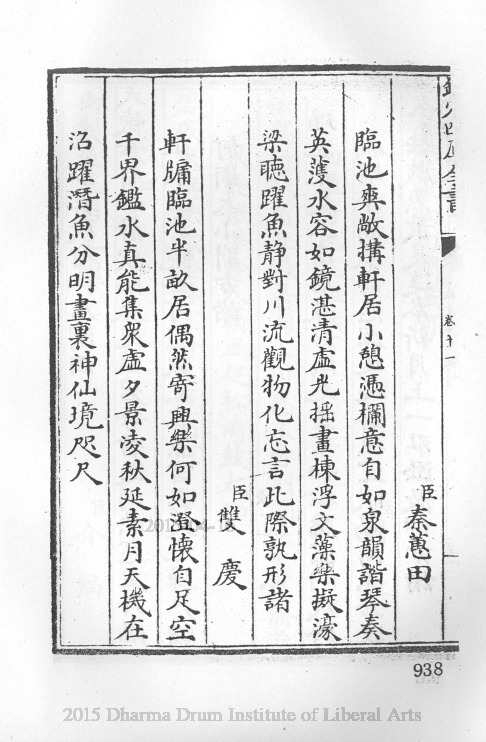 欽定四庫全書
卷十一
臣秦蕙田
臨池爽敞搆軒居小憩憑欄意自如泉韻諧琴奏
英䕶水容如鏡湛清虛光揺畫棟浮文藻樂擬濠
梁聴躍魚静對川流觀物化忘言此際孰形諸
臣雙慶
軒牖臨池半畝居偶然寄興樂何如澄懷自足空
千界鑑水真能集衆虛夕景凌秋延素月天機在
沼躍潛魚分明畫裏神仙境咫尺
938
2015 Dharma Drum Institute of Liberal Arts